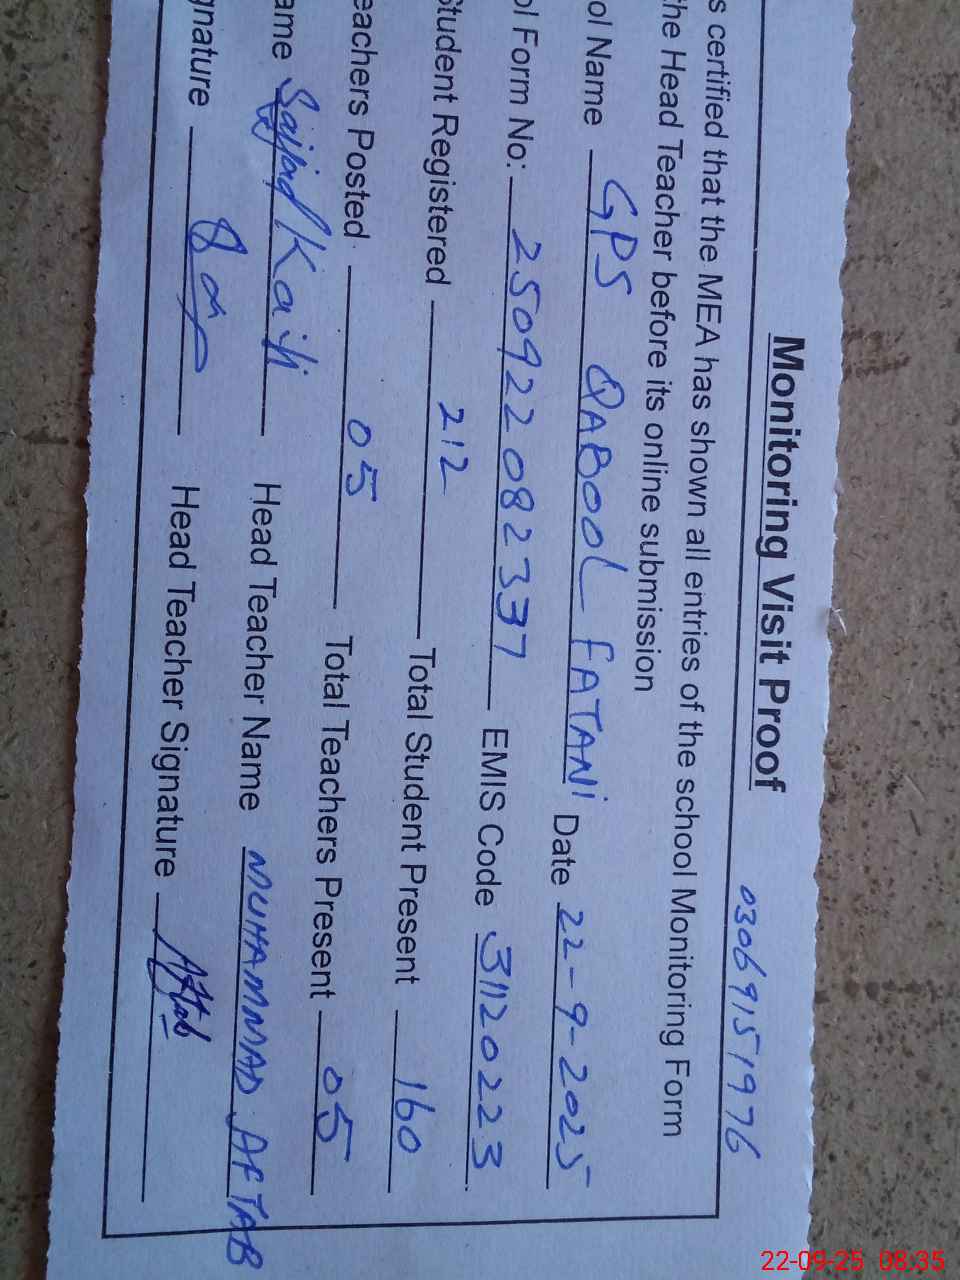 Monitoring Visit Proof
03069151976
s certified that the MEA has shown all entries of the school Monitoring Form
the Head Teacher before its online submission
ol Name GPS QABOOL FATANI Date 22-9-2025
ol Form No: 25092208 2337 EMIS Code 31120223
Student Registered 212 Total Student Present 160
eachers Posted 05 Total Teachers Present 05
ame Sajjad Head Teacher Name MUHAMMAD AFTAB
gnature Head Teacher Signature Aftab
22-09-25 08:35